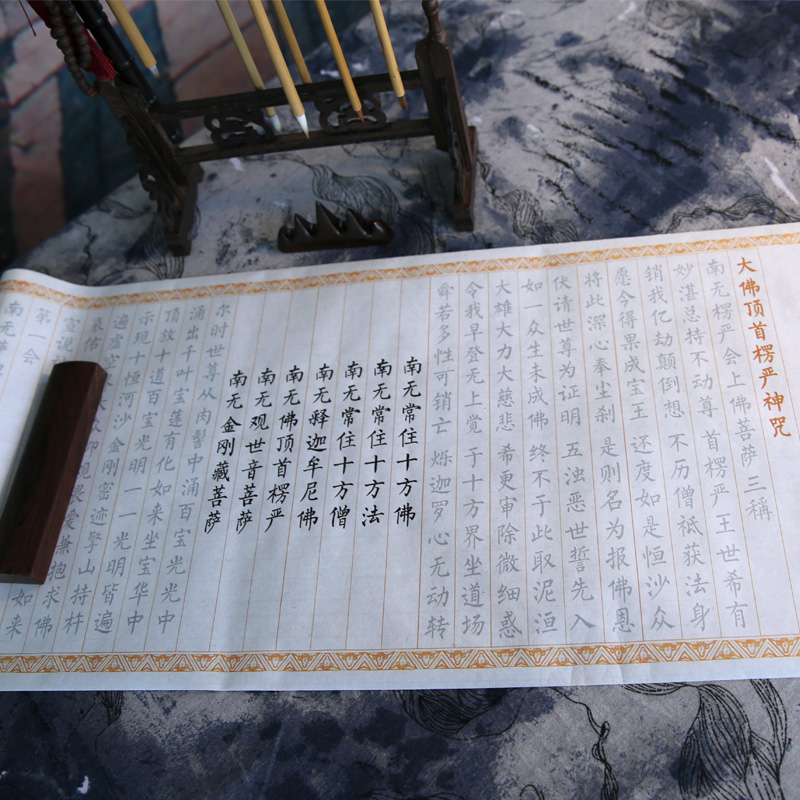 大佛顶首楞严神咒
南无楞严会上佛菩萨三稱
妙湛总持不动尊 首楞严王世希有
销我亿劫颠倒想 不历僧祗获法身
愿今得果成宝王 还度如是恒沙众
将此深心奉尘刹 是则名为报佛恩
伏请世尊为证明 五浊恶世誓先入
如一众生未成佛 终不于此取泥洹
大雄大力大慈悲 希更审除微细惑
令我早登无上觉 于十方界坐道场
舜若多性可销亡 烁迦罗心无动转
南无常住十方佛
南无常住十方法
南无常住十方僧
南无释迦牟尼佛
南无佛顶首楞严
南无观世音菩萨
南无金刚藏菩萨
尔时世尊从肉髻中涌百宝光光中
涌出千叶宝莲有化如来坐宝华中
顶放十道百宝光明一一光明皆遍
示现十恒河沙金刚密迹擎山持杵
遍虚空 仰观畏爱兼抱求佛
哀佑 如来
宣说
第一会
南无萨